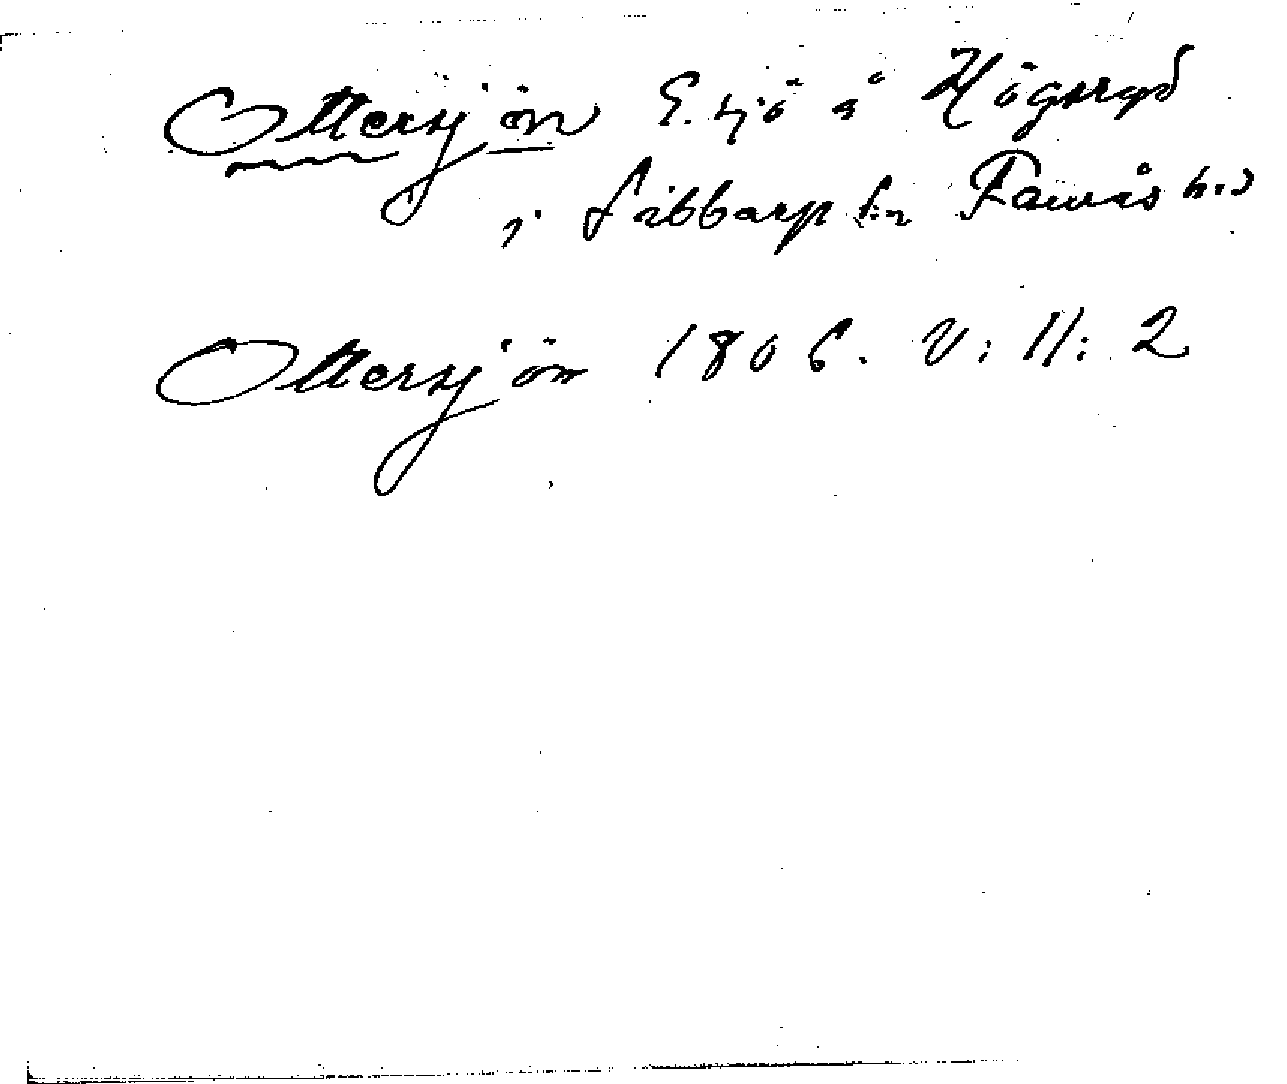 Ottersjön E. sjö å Högsryd
i Sibbarp sn Faurås hd
Ottersjön 1806. V: 11: 2